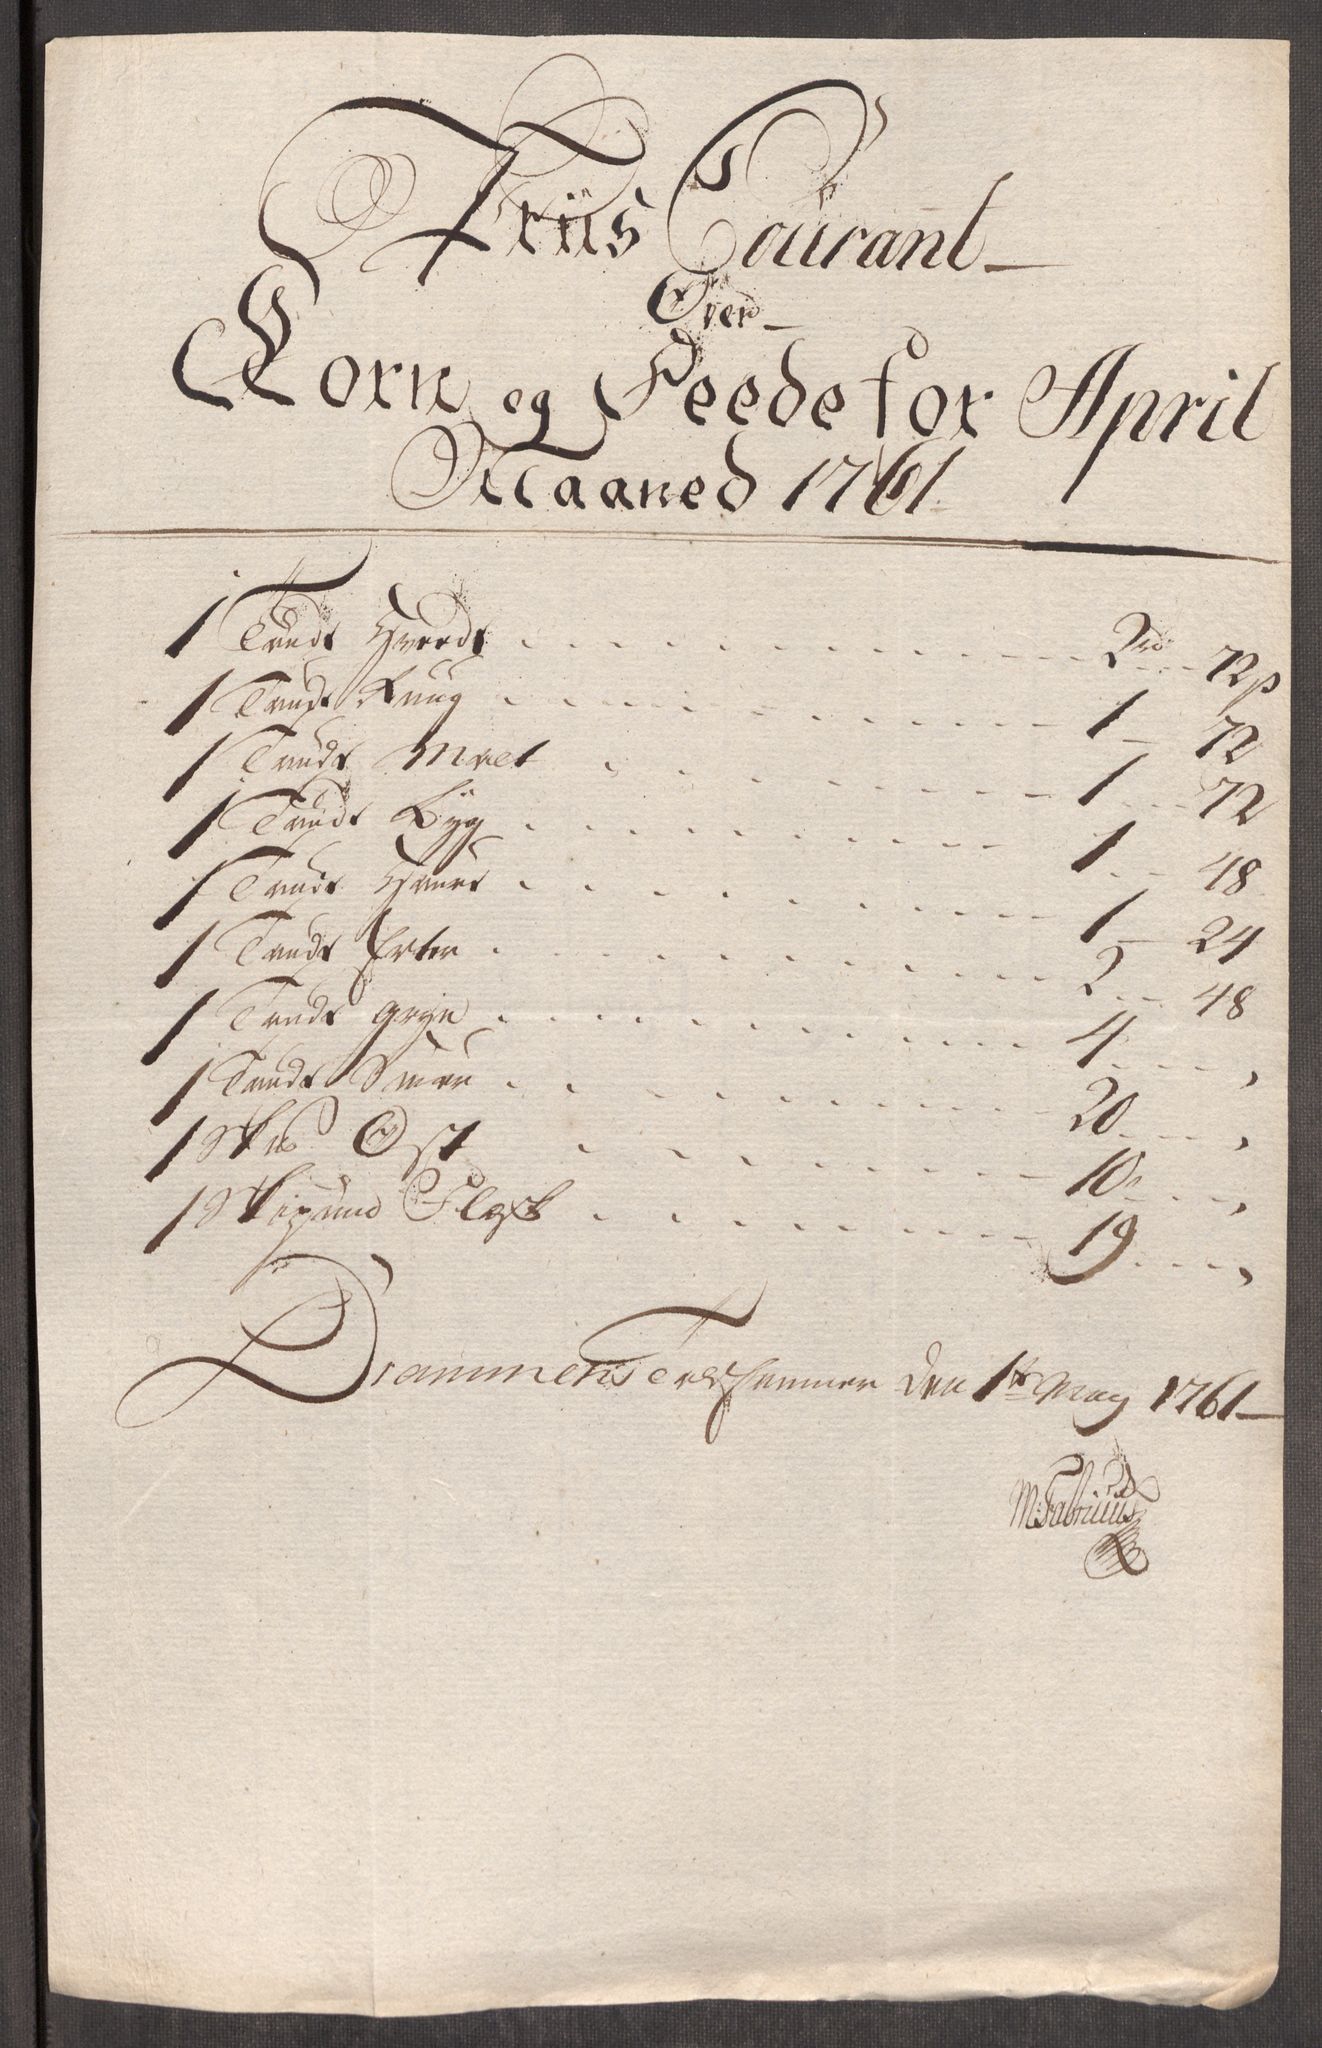 Priis Courant
Over
Korn og Feede for April
Maaned 1761
1 Tønde Hvede 2 rd 72 s
1 Tønde Rug 1 72
1 Tønde Malt 1 72
1 Tønde Byg 1 48
1 Tønde Havre 1 24
1 Tønde Erter 2 48
1 Tønde Gryn 4 "
1 Tønde Smør 20 "
1 Sk℔ Ost 10 "
1 Skippund Flesk 19 "
Drammens Toldkammer den 1te May 1761
M Fabricius